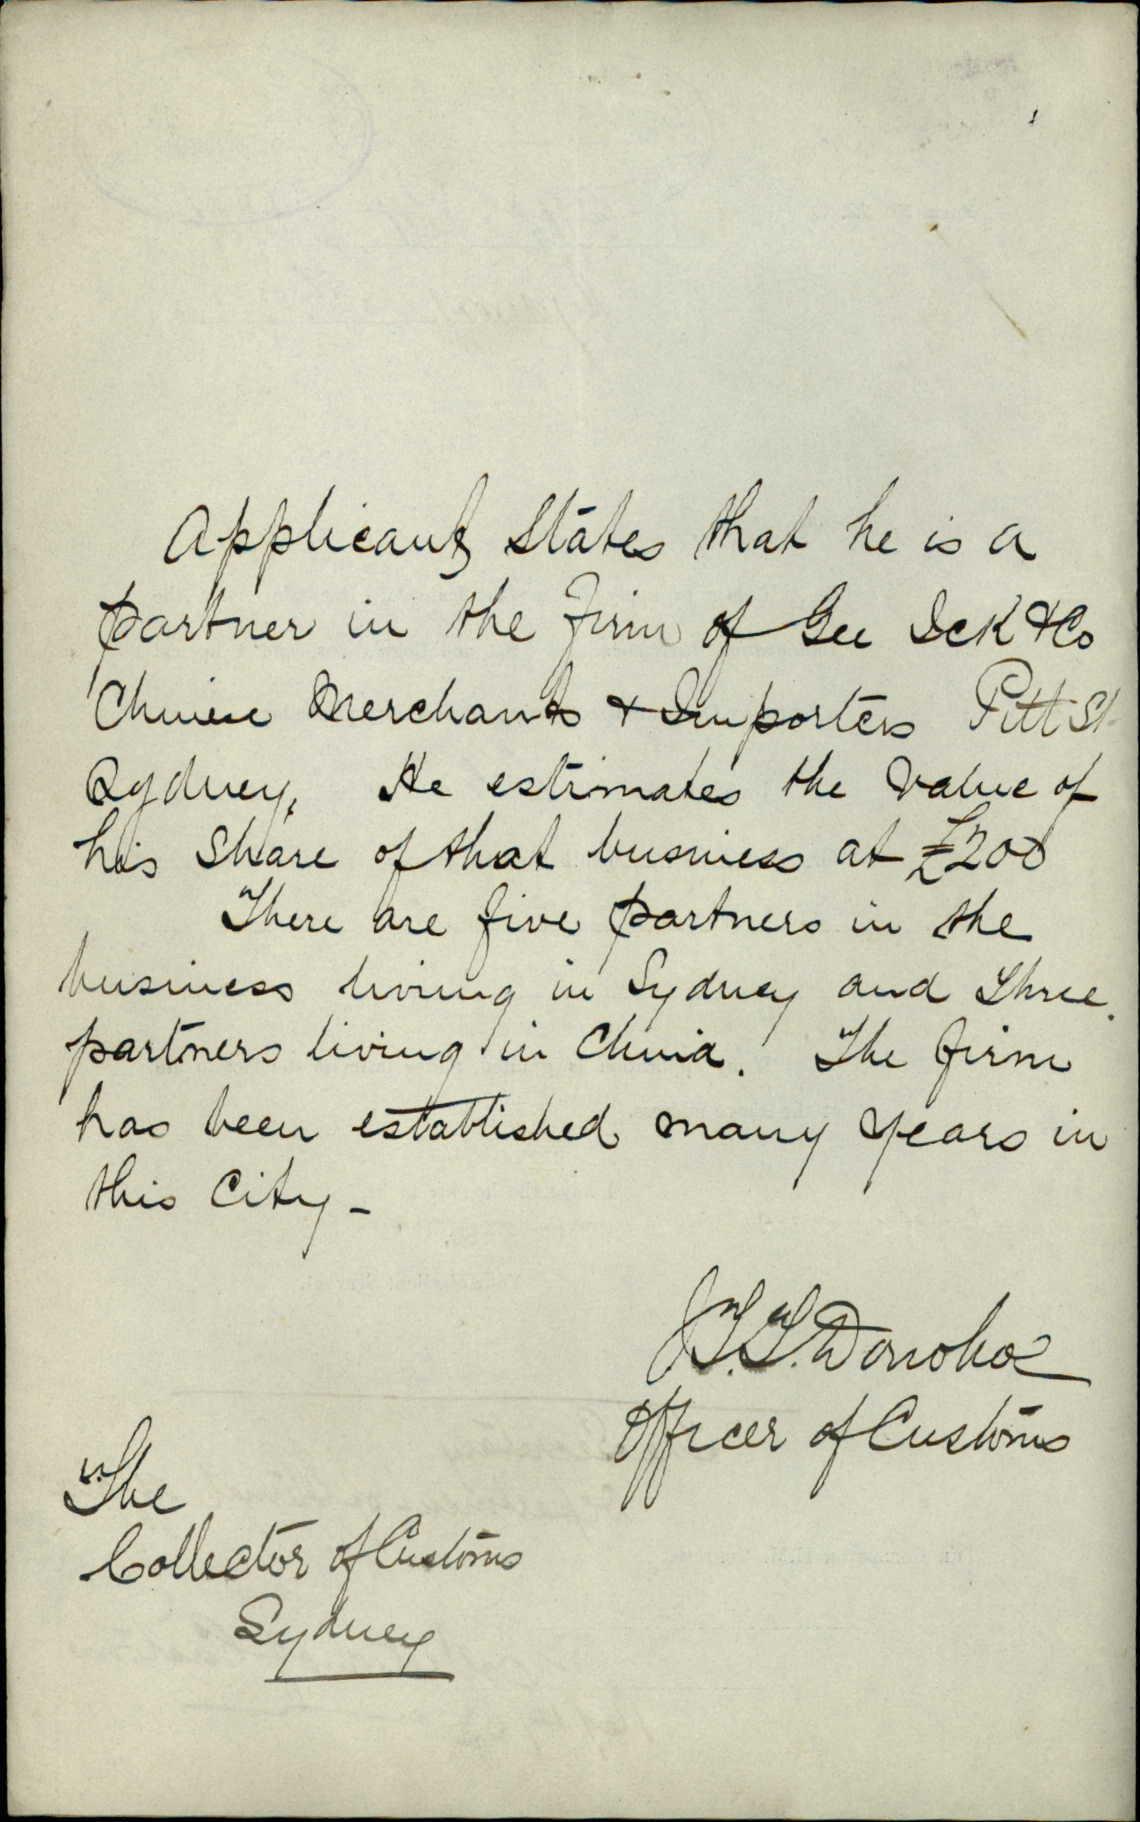 Applicant States that he is a
partner in the firm of Gee Ick & Co
Chinese Merchants & Importers Pitt St
Sydney. He estimates the value of
his Share of that business at £200
There are five partners in the
business living in Sydney and three
partners living in China. The firm
has been established many years in
this City -
J.T.T. Donohoe
Officer of Customs
The
Collector of Customs
Sydney